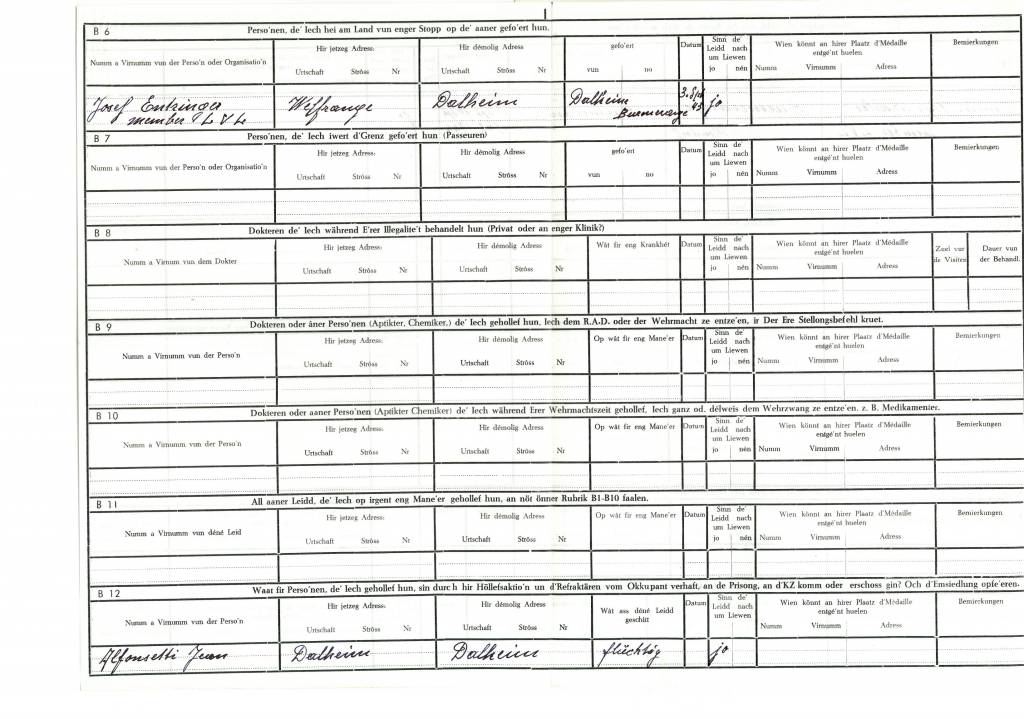 B 6 Perso'nen, de' Iech hei am Land vun enger Stopp op de' aaner gefo'ert hun.
Numm a Virnumm vun der Perso'n oder Organisatio'n Hir jetzeg Adress: Hir démolig Adress gefo'ert Datum Sinn de' Leidd nach um Liewen Wien könnt an hirer Plaatz d'Médaille entgé'nt huelen Bemierkungen
Urtschaft Ströss Nr Urtschaft Ströss Nr vun no jo nén Numm Virnumm Adress
Josef Entringer Welfrange Dalheim Dalheim 3. jo
member L V L Burmerange 45
B 7 Perso'nen, de' Iech iwert d'Grenz gefo'ert hun (Passeuren)
Numm a Virnumm vun der Perso'n oder Organisatio'n Hir jetzeg Adress: Hir démolig Adress gefo'ert Datum Sinn de' Leidd nach um Liewen Wien könnt an hirer Plaatz d'Médaille entgé'nt huelen Bemierkungen
Urtschaft Ströss Nr Urtschaft Ströss Nr vun no jo nén Numm Virnumm Adress
B 8 Dokteren de' Iech während E'rer Illegalite't behandelt hun (Privat oder an enger Klinik?)
Numm a Virnum vun dem Dokter Hir jetzeg Adress: Hir démolig Adress Wât fir eng Krankhét Datum Sinn de' Leidd nach um Liewen Wien könnt an hirer Plaatz d'Médaille entgé'nt huelen Zuel vur de Visiten Dauer vun der Behandl.
Urtschaft Ströss Nr Urtschaft Ströss Nr jo nén Numm Virnumm Adress
B 9 Dokteren oder âner Perso'nen (Aptikter, Chemiker,) de' Iech gehollef hun, Iech dem R.A.D. oder der Wehrmacht ze entze'en, ir Der Ere Stellongsbefehl kruet.
Numm a Virnumm vun der Perso'n Hir jetzeg Adress: Hir démolig Adress Op wât fir eng Mane'er Datum Sinn de' Leidd nach um Liewen Wien könnt an hirer Plaatz d'Médaille entgé'nt huelen Bemierkungen
Urtschaft Ströss Nr Urtschaft Ströss Nr jo nén Numm Virnumm Adress
B 10 Dokteren oder aaner Perso'nen (Aptikter Chemiker) de' Iech während Erer Wehrmachtszeit gehollef, Iech ganz od. délweis dem Wehrzwang ze entze'en. z. B. Medikamenter.
Numm a Virnumm vun der Perso'n Hir jetzeg Adress: Hir démolig Adress Op wât fir eng Mane'er Datum Sinn de' Leidd nach um Liewen Wien könnt an hirer Plaatz d'Médaille entgé'nt huelen Bemierkungen
Urtschaft Ströss Nr Urtschaft Ströss Nr jo nén Numm Virnumm Adress
B 11 All aaner Leidd, de' Iech op irgent eng Mane'er gehollef hun, an nöt önner Rubrik B1-B10 faalen.
Numm a Virnumm vun déné Leid Hir jetzeg Adress: Hir démolig Adress Op wât fir eng Mane'er Datum Sinn de' Leidd nach um Liewen Wien könnt an hirer Plaatz d'Médaille entgé'nt huelen Bemierkungen
Urtschaft Ströss Nr Urtschaft Ströss Nr jo nén Numm Virnumm Adress
B 12 Waat fir Perso'nen, de' Iech gehollef hun, sin durch hir Höllefsaktio'n un d'Refraktären vom Okkupant verhaft, an de Prisong, an d'KZ komm oder erschoss gin? Och d'Emsiedlung opfe'eren.
Numm a Virnumm vun der Perso'n Hir jetzeg Adress: Hir démolig Adress Wât ass déné Leidd geschitt Datum Sinn de' Leidd nach um Liewen Wien könnt an hirer Plaatz d'Médaille entgé'nt huelen Bemierkungen
Urtschaft Ströss Nr Urtschaft Ströss Nr jo nén Numm Virnumm Adress
Alfonsetti Jean Dalheim Dalheim flüchtig jo